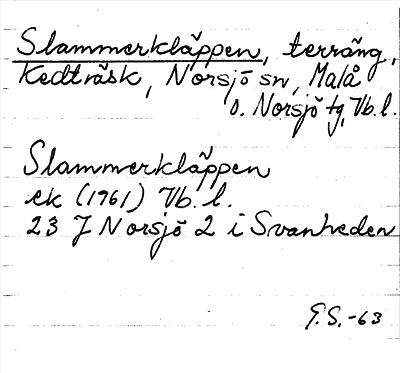 Slammerkläppen, terräng,
Kedträsk, Norsjö sn, Malå
o. Norsjö tg, Vb. l.
Slammerkläppen
ek (1961) Vb. l.
23 J Norsjö 2 i Svanheden
G.S.-63